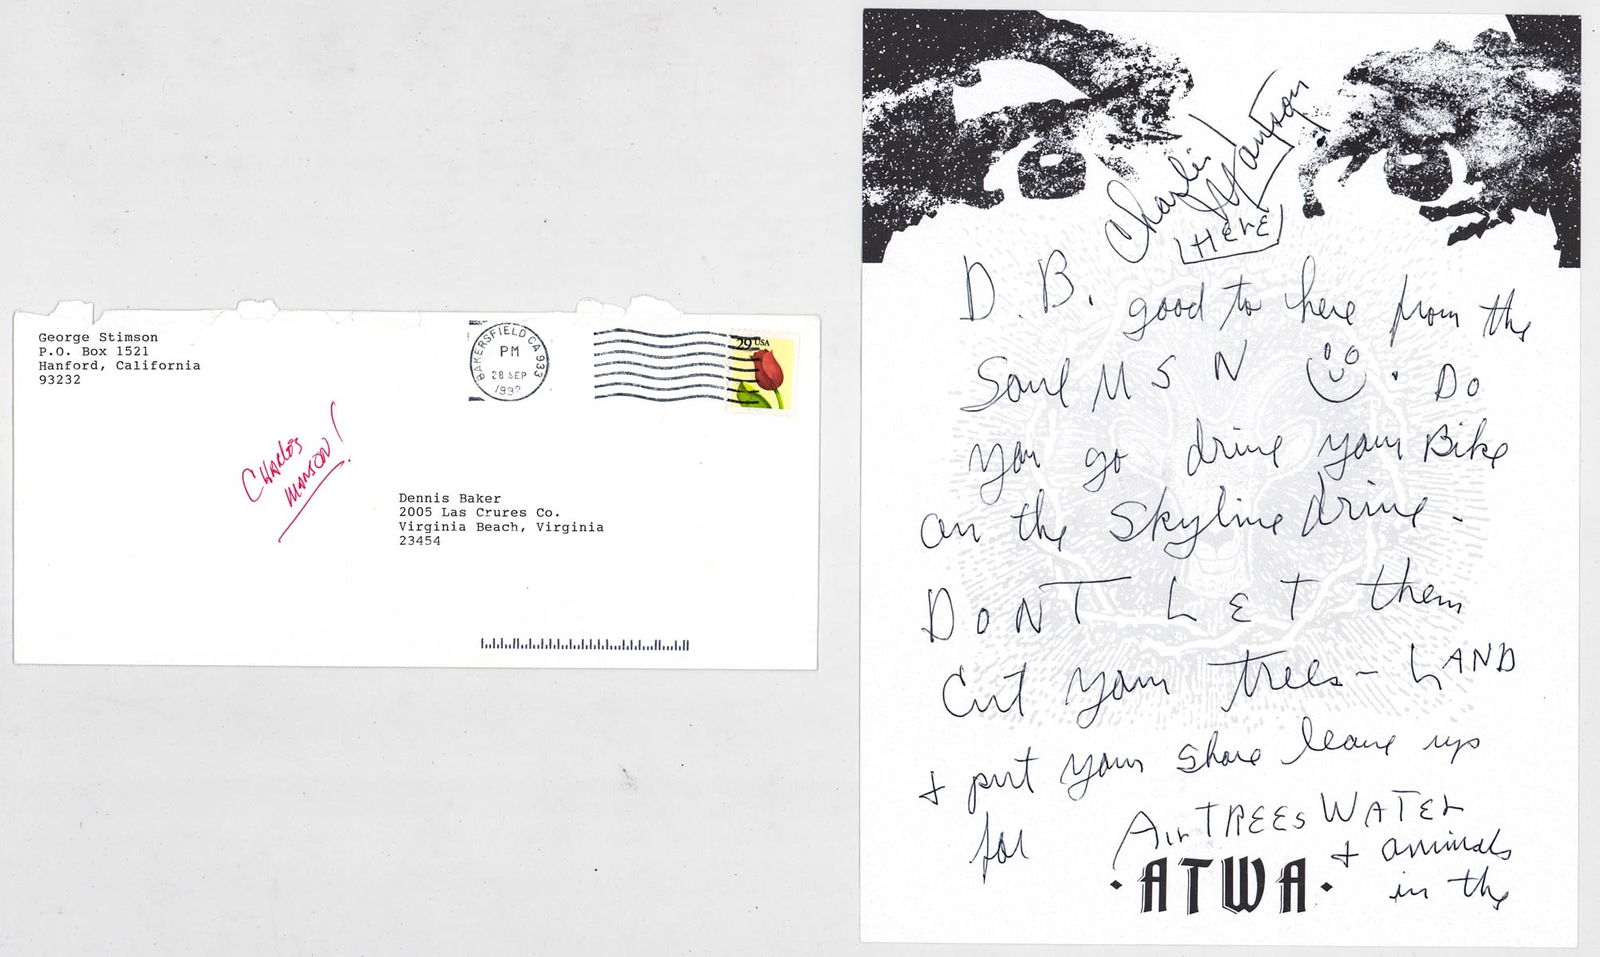 George Stimson
P.O. Box 1521
Hanford, California
93232
BAKERSFIELD CA 933
PM
28 SEP
29 USA
CHARLES
MANSON!
Dennis Baker
2005 Las Crures Co.
Virginia Beach, Virginia
23454
Charlie Manson
HERE
D. B. good to here from the
Soul M S N . Do
you go drive your Bike
on the Skyline drive -
DONT LET them
Cut your trees - LAND
+ put your share leave up
for Air TREES WATER
+ animals
ATWA
in the